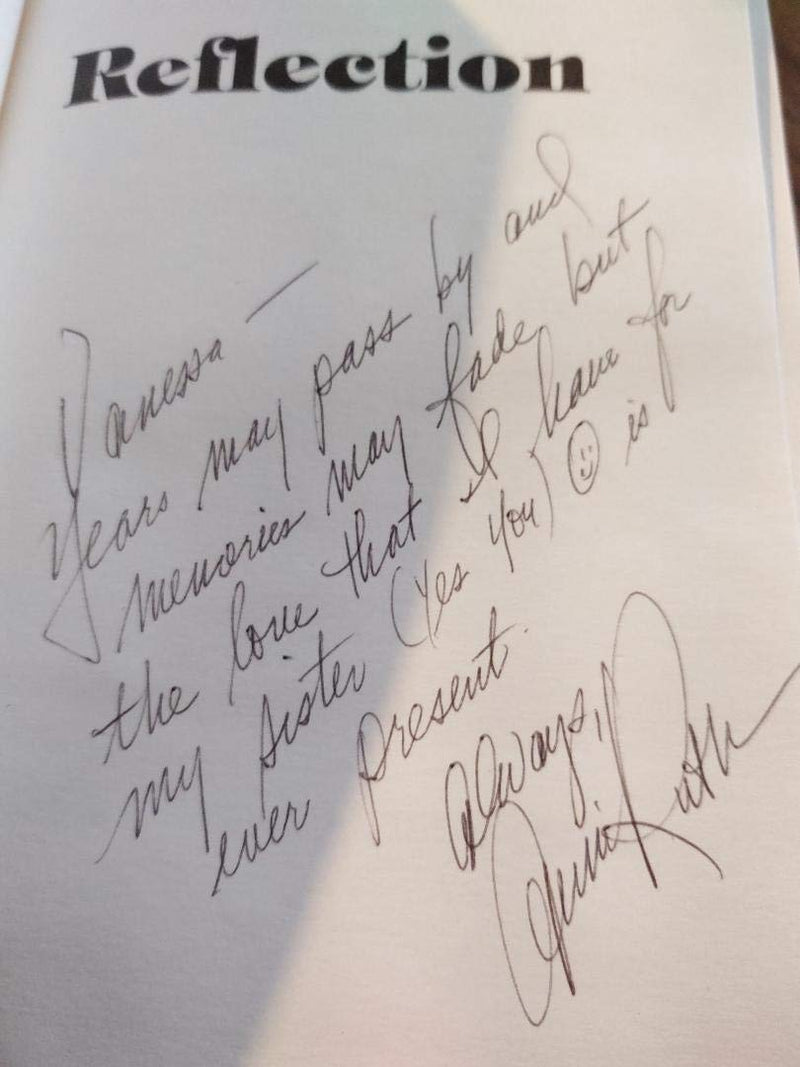 Reflection
Vanessa —
Years may pass by and
memories may fade but
the love that I have for
my sister (Yes You) is
ever present.
Always,
Ruth